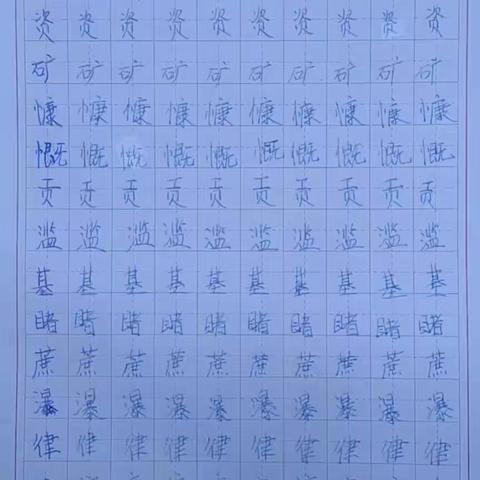 资资资资资资资资资资
矿矿矿矿矿矿矿矿矿矿
慷慷慷慷慷慷慷慷慷慷
慨慨慨慨慨慨慨慨慨慨
贡贡贡贡贡贡贡贡贡贡
滥滥滥滥滥滥滥滥滥滥
基基基基基基基基基基
睹睹睹睹睹睹睹睹睹睹
蔗蔗蔗蔗蔗蔗蔗蔗蔗蔗
瀑瀑瀑瀑瀑瀑瀑瀑瀑瀑
律律律律律律律律律律